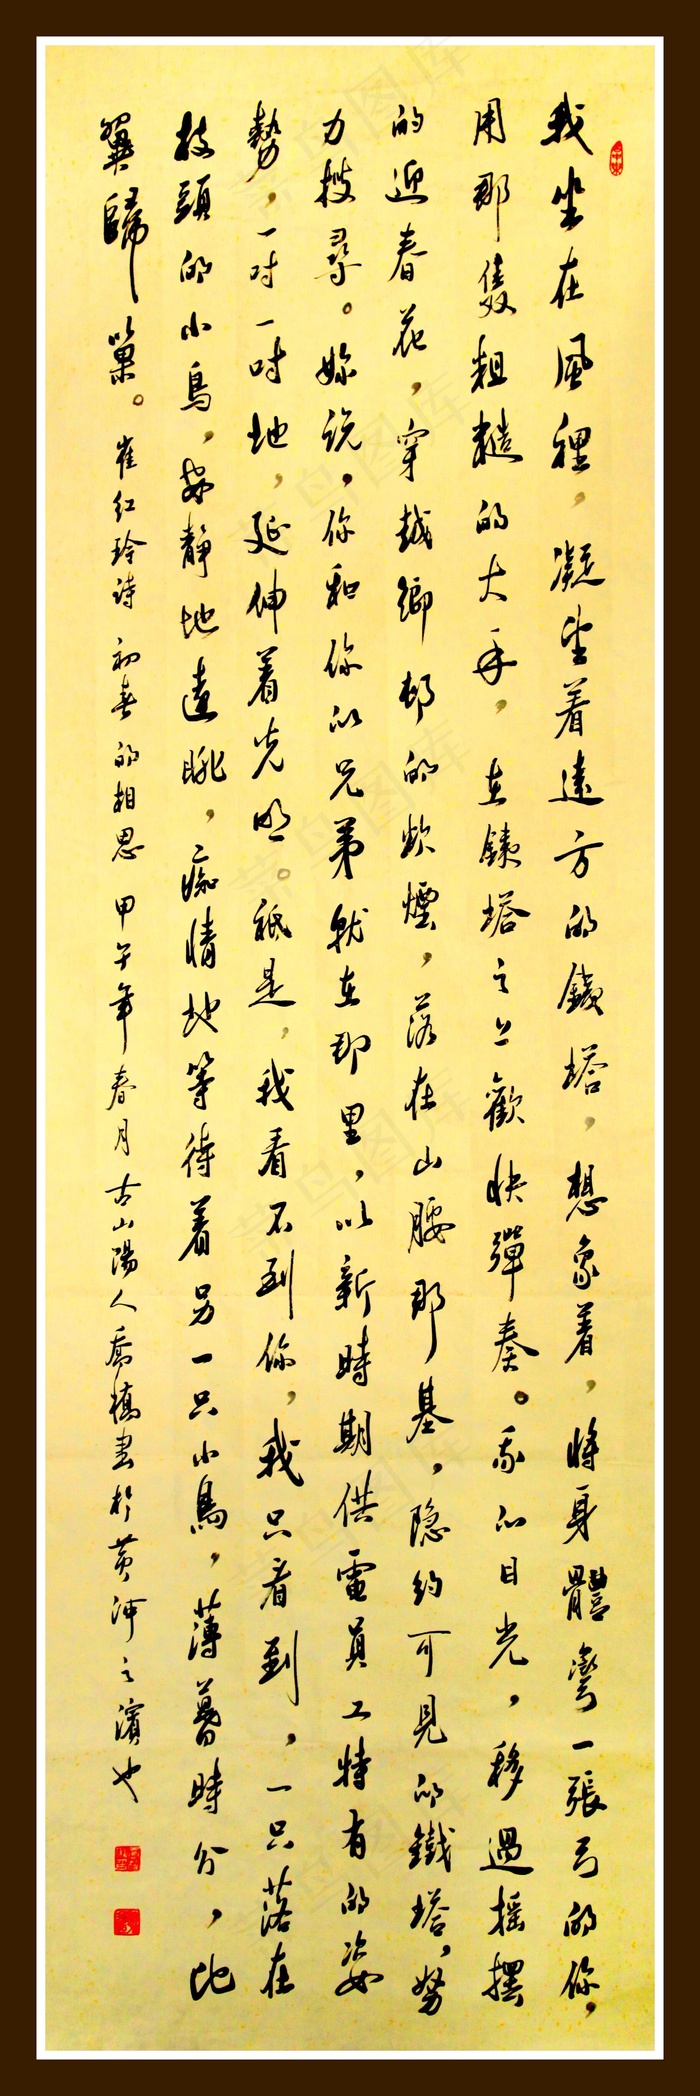 我坐在風裡，凝望着遠方的鐵塔，想象着，將身體彎一張弓的你，
用那隻粗糙的大手，在鐵塔之上歡快彈奏。我的目光，移過搖擺
的迎春花，穿越鄉邨的炊煙，落在山腰那基，隐約可見的鐵塔，努
力搜尋。妳説，你和你的兄弟就在那里，以新時期供電員工特有的姿
勢，一吋一吋地，延伸着光明。祗是，我看不到你，我只看到，一只落在
枝頭的小鳥，安靜地遠眺，痴情地等待着另一只小鳥，薄暮時分，比
翼歸巢。崔紅玲詩 初春的相思 甲午年春月古山陽人喬楨書於黄河之濱也
菜鸟图库